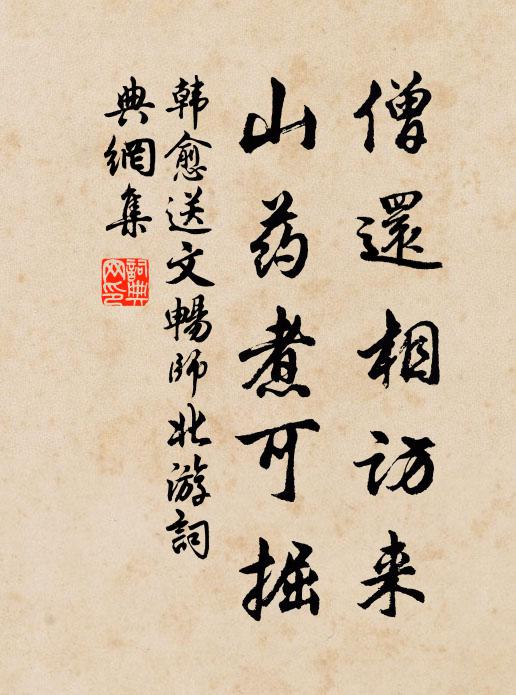 僧還相访来
山药煮可掘
韩愈送文暢师北游詞
典網集
詞典網印